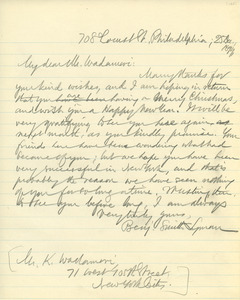 708 Locust St. Philadelphia, 25 Dec.
My dear Mr. Wadamori:
Many thanks for
your kind wishes, and I am hoping in return
that you are having a Merry Christmas,
and wish you a Happy New Year. It would be
very gratifying to see you here again
next month, as you kindly promise. Your
friends here have been wondering what had
become of you; but we hope you have been
very successful in New York, and that's
probably the reason we have seen nothing
of you for so long a time. Trusting then
to see you before long, I am always
Very truly yours,
Benj. Smith Lyman.
Mr. K. Wadamori,
71 West Street,
New York City.